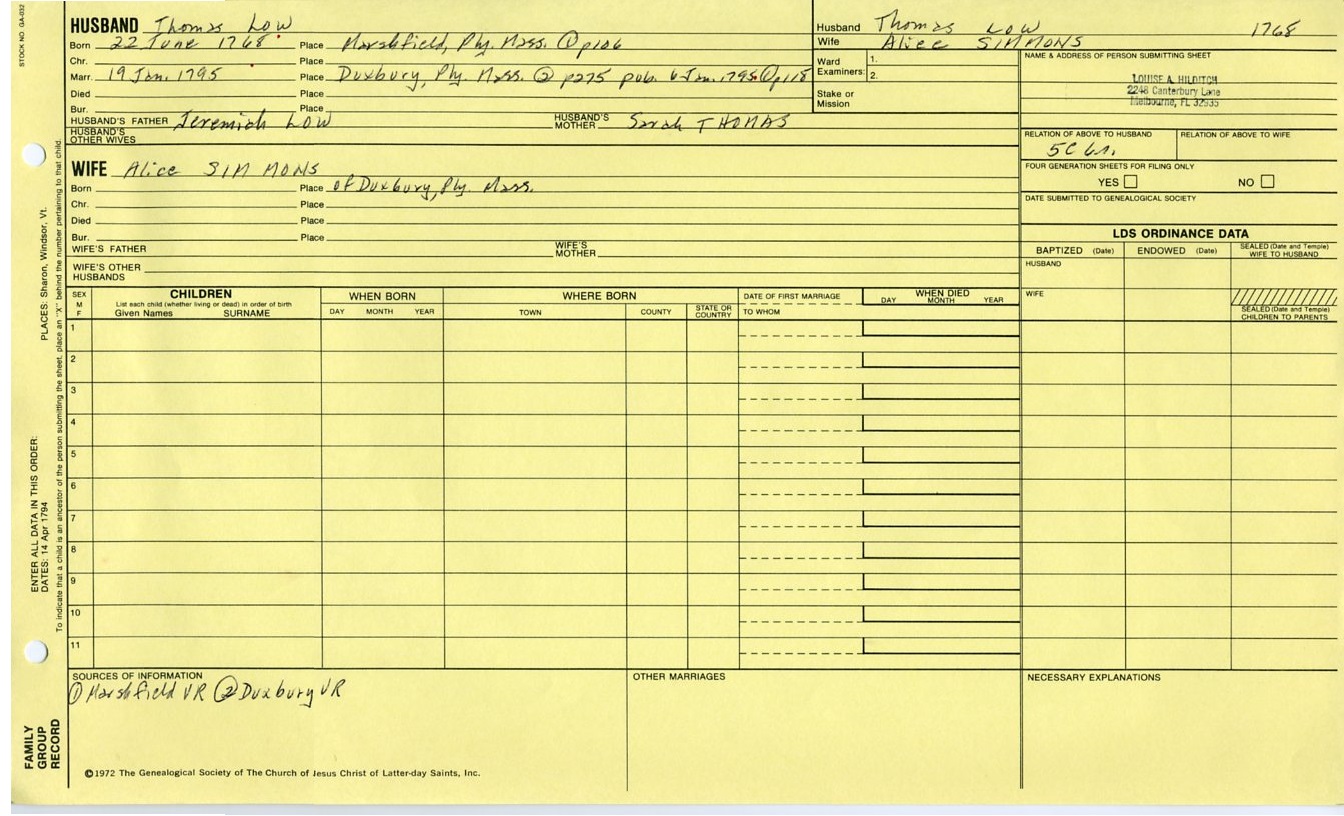 STOCK NO. GA-032
HUSBAND Thomas LOW
Born 22 June 1768 Place Marshfield, Ply. Mass. ① p106
Chr. Place
Marr. 19 Jan. 1795 Place Duxbury, Ply. Mass. ② p275 pub. 6 Jan. 1795 ① p118
Died Place
Bur. Place
HUSBAND'S FATHER Jeremiah LOW HUSBAND'S MOTHER Sarah THOMAS
HUSBAND'S OTHER WIVES
Husband Thomas LOW 1768
Wife Alice SIMMONS
Ward Examiners: 1.
2.
Stake or Mission
NAME & ADDRESS OF PERSON SUBMITTING SHEET
LOUISE A. HILDITCH
2248 Canterbury Lane
Melbourne, FL 32935
RELATION OF ABOVE TO HUSBAND RELATION OF ABOVE TO WIFE
5C 6r.
FOUR GENERATION SHEETS FOR FILING ONLY
YES NO
DATE SUBMITTED TO GENEALOGICAL SOCIETY
WIFE Alice SIMMONS
Born Place of Duxbury, Ply. Mass.
Chr. Place
Died Place
Bur. Place
WIFE'S FATHER WIFE'S MOTHER
WIFE'S OTHER HUSBANDS
LDS ORDINANCE DATA
BAPTIZED (Date) ENDOWED (Date) SEALED (Date and Temple) WIFE TO HUSBAND
HUSBAND
WIFE
SEALED (Date and Temple) CHILDREN TO PARENTS
SEX M F
CHILDREN
List each child (whether living or dead) in order of birth
Given Names SURNAME
WHEN BORN
DAY MONTH YEAR
WHERE BORN
TOWN COUNTY STATE OR COUNTRY
DATE OF FIRST MARRIAGE
TO WHOM
WHEN DIED
DAY MONTH YEAR
1
2
3
4
5
6
7
8
9
10
11
SOURCES OF INFORMATION
① Marshfield VR ② Duxbury VR
OTHER MARRIAGES
NECESSARY EXPLANATIONS
©1972 The Genealogical Society of The Church of Jesus Christ of Latter-day Saints, Inc.
FAMILY GROUP RECORD
ENTER ALL DATA IN THIS ORDER:
DATES: 14 Apr 1794
PLACES: Sharon, Windsor, Vt.
To indicate that a child is an ancestor of the person submitting the sheet, place an "X" behind the number pertaining to that child.